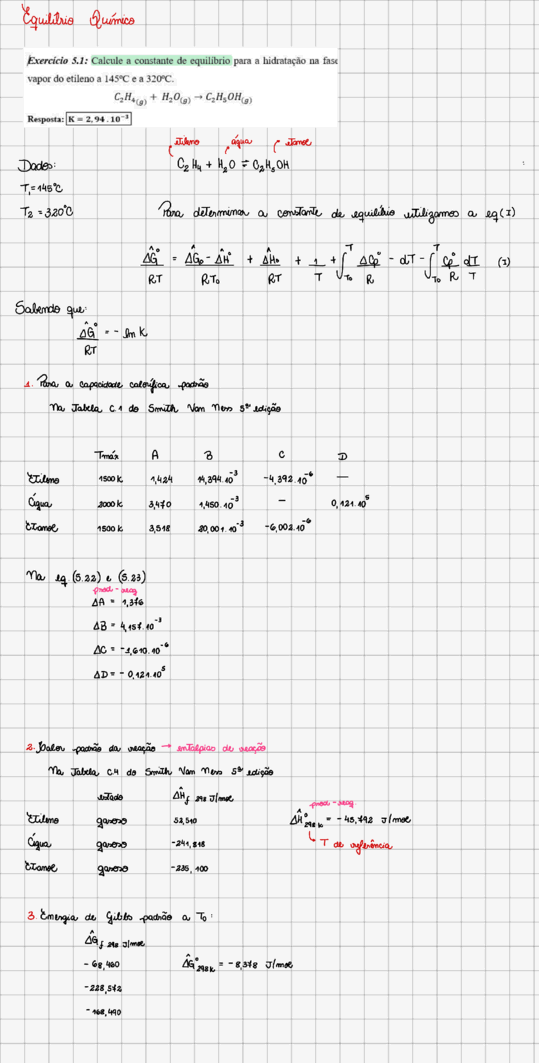 Equilíbrio Químico
Exercício 5.1: Calcule a constante de equilíbrio para a hidratação na fase
vapor do etileno a 145ºC e a 320ºC.
C₂H₄(g) + H₂O(g) → C₂H₅OH(g)
Resposta: K = 2,94 . 10⁻³
etileno água etanol
Dados: C₂H₄ + H₂O ⇌ C₂H₅OH
T₁ = 145°C
T₂ = 320°C Para determinar a constante de equilíbrio utilizamos a eq (I)
ΔĜ°/RT = ΔĜ₀ - ΔĤ°/RT₀ + ΔĤ₀/RT + 1/T + ∫T₀T ΔCp°/R - dT - ∫T₀T Cp°/R dT/T (I)
Sabendo que:
ΔĜ°/RT = - ln K
1. Para a capacidade calorífica padrão
Na Tabela C.1 do Smith Van Ness 5ª edição
Tmáx A B C D
Etileno 1500 K 1,424 14,394.10⁻³ -4,392.10⁻⁶ —
Água 2000 K 3,470 1,450.10⁻³ - 0,121.10⁵
Etanol 1500 K 3,518 20,001.10⁻³ -6,002.10⁻⁶
Na eq. (5.22) e (5.23)
prod - reag
ΔA = 1,376
ΔB = 4,157.10⁻³
ΔC = -1,610.10⁻⁶
ΔD = - 0,121.10⁵
2. Calor padrão da reação → entalpias de reação
Na Tabela C.4 do Smith Van Ness 5ª edição
estado ΔĤf 298 J/mol
prod - reag
Etileno gasoso 52,510 ΔĤ°298 K = - 45,792 J/mol
Água gasoso -241,818 T de referência
Etanol gasoso -235,100
3. Energia de Gibbs padrão a T₀:
ΔĜf 298 J/mol
- 68,460 ΔĜ°298 K = - 8,378 J/mol
-228,572
-168,490